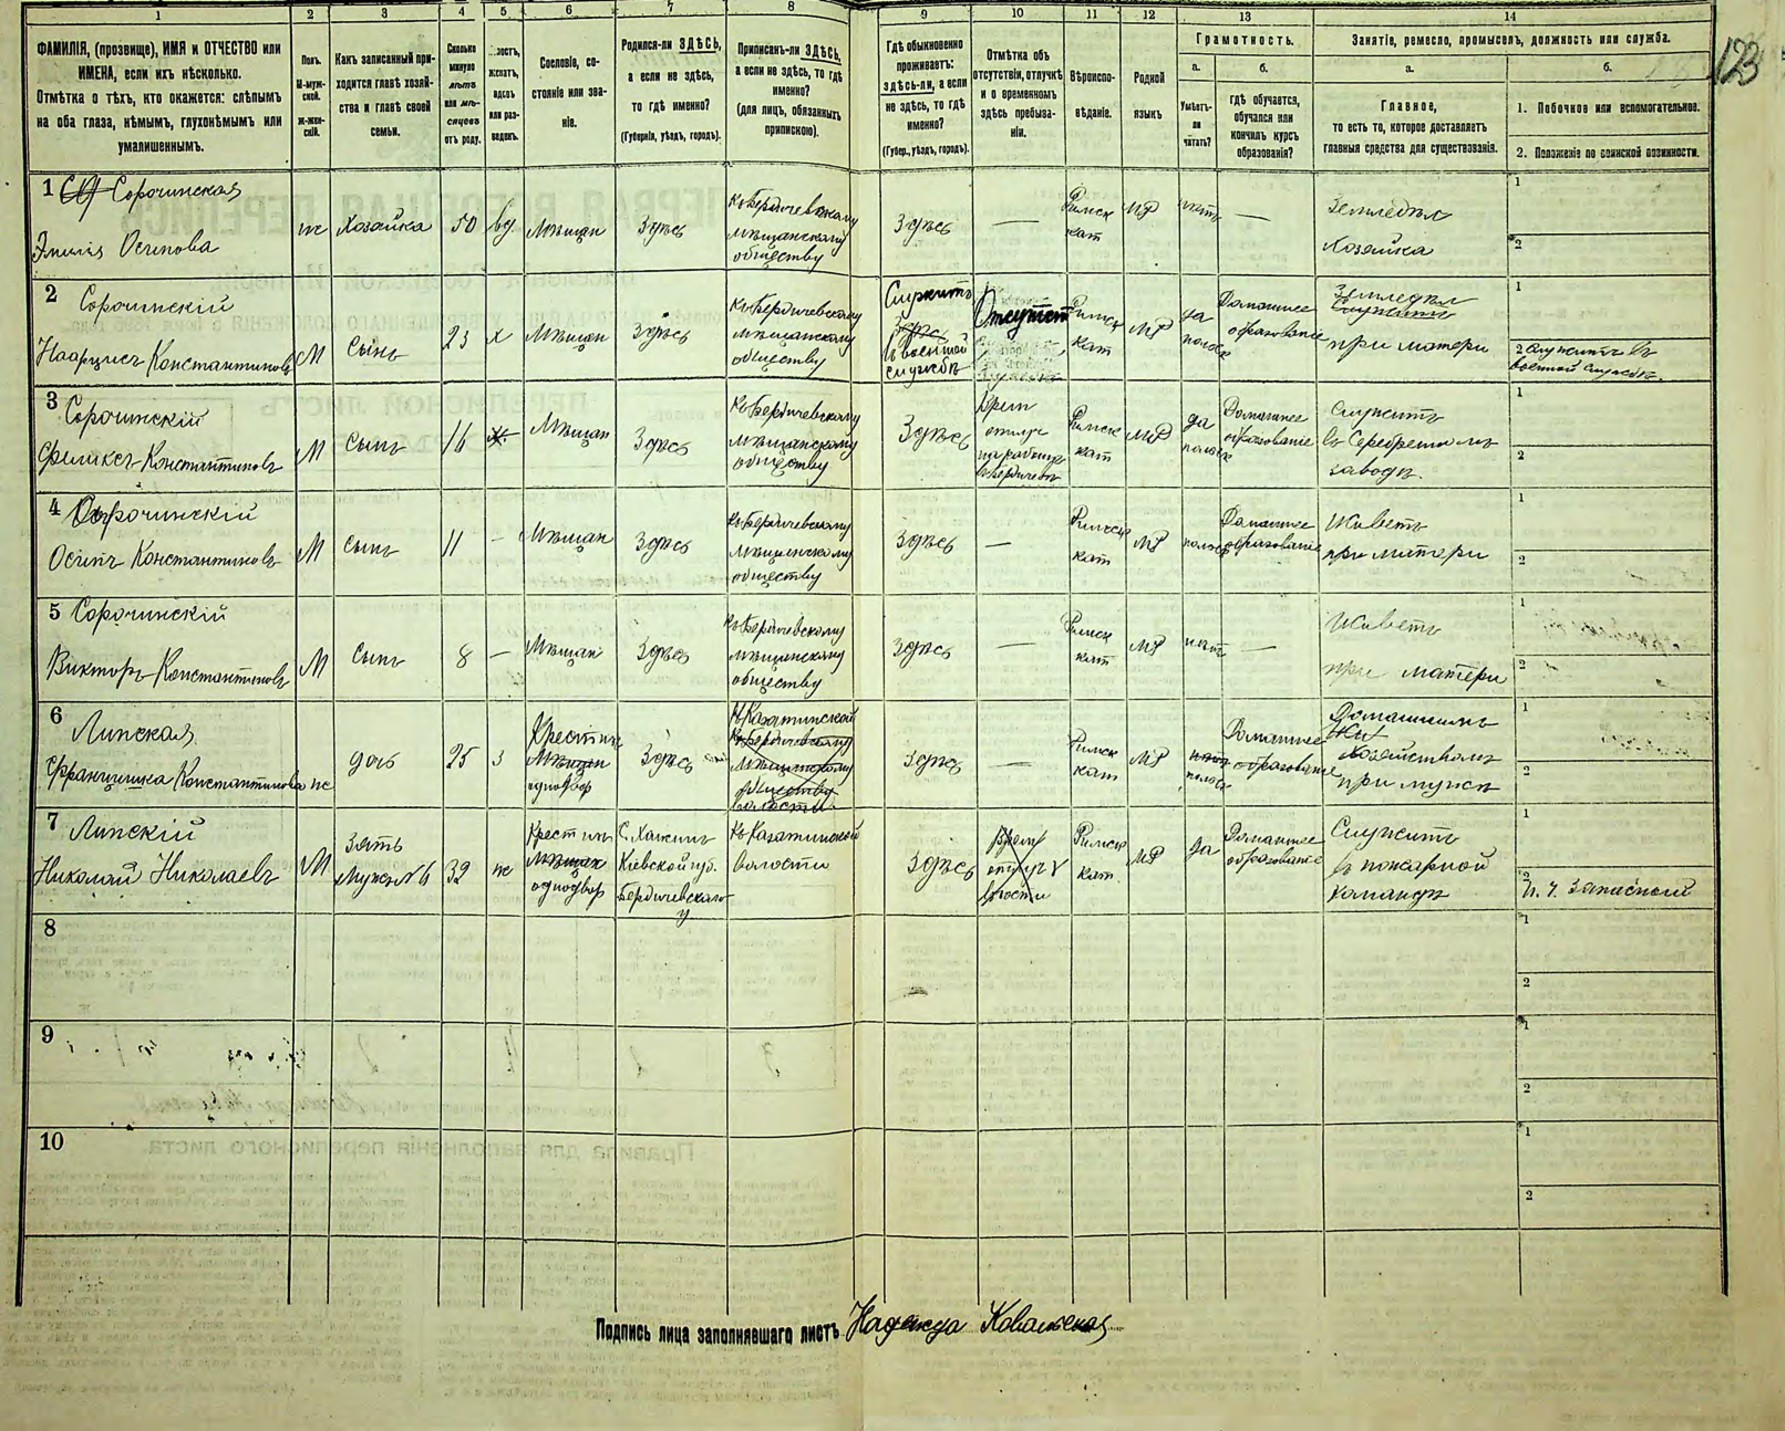 1 2 3 4 5 6 7 8 9 10 11 12 13 14
ФАМИЛІЯ, (прозвище), ИМЯ и ОТЧЕСТВО или
ИМЕНА, если ихъ нѣсколько.
Отмѣтка о тѣхъ, кто окажется: слѣпымъ
на оба глаза, нѣмымъ, глухонѣмымъ или
умалишеннымъ.
Полъ.
М-муж-
ской.
Ж-жен-
скій.
Какъ записанный при-
ходится главѣ хозяй-
ства и главѣ своей
семьи.
Сколько
минуло
лѣтъ
или мѣ-
сяцевъ
отъ роду.
женатъ,
вдовъ
или раз-
веденъ.
Сословіе, со-
стояніе или зва-
ніе.
Родился-ли ЗДѢСЬ,
а если не здѣсь,
то гдѣ именно?
(Губернія, уѣздъ, городъ).
Приписанъ-ли ЗДѢСЬ,
а если не здѣсь, то гдѣ
именно?
(для лицъ, обязанныхъ
припискою).
Гдѣ обыкновенно
проживаетъ:
здѣсь-ли, а если
не здѣсь, то гдѣ
именно?
(Губер., уѣздъ, городъ).
Отмѣтка объ
отсутствіи, отлучкѣ
и о временномъ
здѣсь пребыва-
ніи.
Вѣроиспо-
вѣданіе.
Родной
языкъ
Грамотность.
а.
Умѣетъ-
ли
читать?
б.
гдѣ обучается,
обучался или
кончилъ курсъ
образованія?
Занятіе, ремесло, промыселъ, должность или служба.
а.
Главное,
то есть то, которое доставляетъ
главныя средства для существованія.
б.
1. Побочное или вспомогательное.
2. Положеніе по воинской повинности.
123
1 Сорочинская
Эмилія Осипова
ж
Хозяйка
50
вд
Мѣщан
Здѣсь
Къ Бердичевскому
мѣщанскому
обществу
Здѣсь
—
Римск
кат
нѣтъ
—
Земледѣл
Хозяйка
1
2
2 Сорочинскій
Нарцисъ Константиновъ
М
Сынъ
23
х
Мѣщан
Здѣсь
Къ Бердичевскому
мѣщанскому
обществу
Служитъ
Здѣсь
в военной
службѣ
Отсутст
Римск
кат
да
польск
Домашнее
образованіе
Земледѣл
Служитъ
при матери
1
2 Служитъ въ
военной службѣ.
3 Сорочинскій
Феликсъ Константиновъ
М
Сынъ
16
х
Мѣщан
Здѣсь
Къ Бердичевскому
мѣщанскому
обществу
Здѣсь
Врем
отлуч
Римск
кат
да
польск
Домашнее
образованіе
Служитъ
въ
заводѣ.
1
2
4 Сорочинскій
Осипъ Константиновъ
М
сынъ
11
-
Мѣщан
Здѣсь
Къ Бердичевскому
мѣщанскому
обществу
Здѣсь
—
Римск
кат
польск
Домашнее
образованіе
Живетъ
при матери
1
2
5 Сорочинскій
Викторъ Константиновъ
М
Сынъ
8
—
Мѣщан
Здѣсь
Къ Бердичевскому
мѣщанскому
обществу
Здѣсь
—
Римск
кат
нѣтъ
—
Живетъ
при матери
1
2
6 Липская
Францишка Константинова
ж
дочь
25
з
Крестян
Мѣщан
однодвор
Здѣсь
Къ Казатинской
Къ Бердичевскому
мѣщанскому
обществу
волости
Здѣсь
—
Римск
кат
нѣтъ
польск
Домашнее
образованіе
Домашнимъ
Жив
хозяйствомъ
при мужѣ
1
2
7 Липскій
Николай Николаевъ
М
Зять
Мужъ №6
32
ж
Крестян
Мѣщан
однодвор
Кіевской губ.
Бердичевскаго
у
Къ Казатинской
волости
Здѣсь
Римск
кат.
да
Домашнее
образованіе
Служитъ
в пожарной
командѣ
1
2
Запасной
8
1
2
9
1
2
10
1
2
Подпись лица заполнявшаго листъ Надежда Ковальская